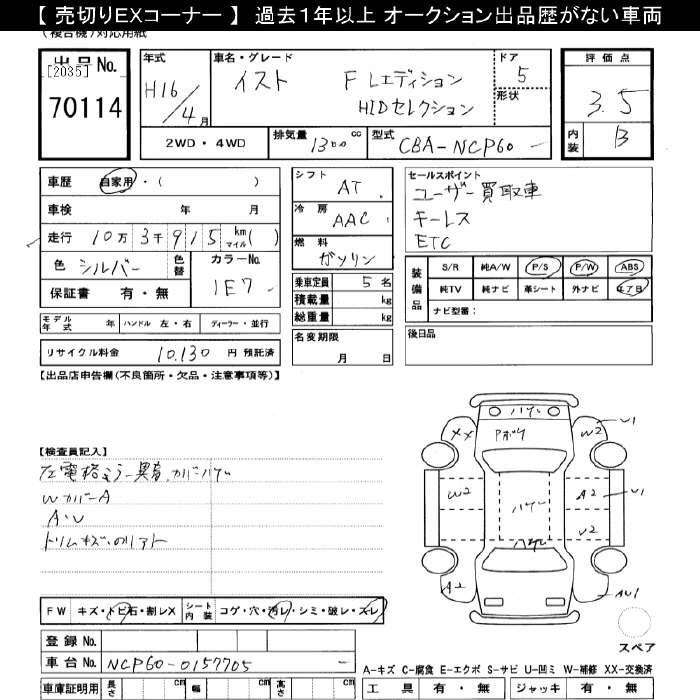 【 売切りEXコーナー 】 過去１年以上 オークション出品歴がない車両
(複合機)対応用紙
出品 No.
[2035]
70114
年式
H16/4月
車名・グレード
イスト F Lエディション
HIDセレクション
ドア
5
形状
2WD・4WD
排気量 1300 cc
型式 CBA-NCP60
評価点
3.5
内装 B
車歴 自家用・( )
車検 年 月
走行 10万3千915 km マイル ( )
色 シルバー 色替
カラーNo.
1E7
保証書 有・無
シフト AT
冷房 AAC
燃料 ガソリン
乗車定員 5 名
積載量 kg
総重量 kg
名変期限
月 日
セールスポイント
ユーザー買取車
キーレス
ETC
装備品
S/R 純A/W P/S P/W ABS
純TV 純ナビ 革シート 外ナビ エアB
ナビ型番:
後日品
モデル年式 年 ハンドル 左・右 ディーラー・並行
リサイクル料金 10,130 円 預託済
【出品店申告欄(不良箇所・欠品・注意事項等)】
【検査員記入】
左電格ミラー異音、カバーハゲ
Wカバー A
A・U
トリムキズ・のリアト
ハゲ
XX
Pボケ
W2
U1
W2
ハゲ
A2
U1
U2
ハゲ
A2
AU1
スペア
FW キズ・トビ石・割レX
シート内装 コゲ・穴・汚レ・シミ・破レ・スレ
登録 No.
車台 No. NCP60-0157705
車庫証明用 長さ cm 幅 cm 高さ cm
A-キズ C-腐食 E-エクボ S-サビ U-凹ミ W-補修 XX-交換済
工具 有・無 ジャッキ 有・無